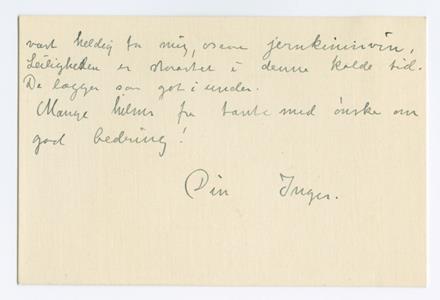 vært heldig fra mig, osove jernkininvin,
Leiligheten er storartet i denne kolde tid.
De lægger saa got i under.
Mange hilsner fra tante med ønske om
god bedring!
Din Inger.